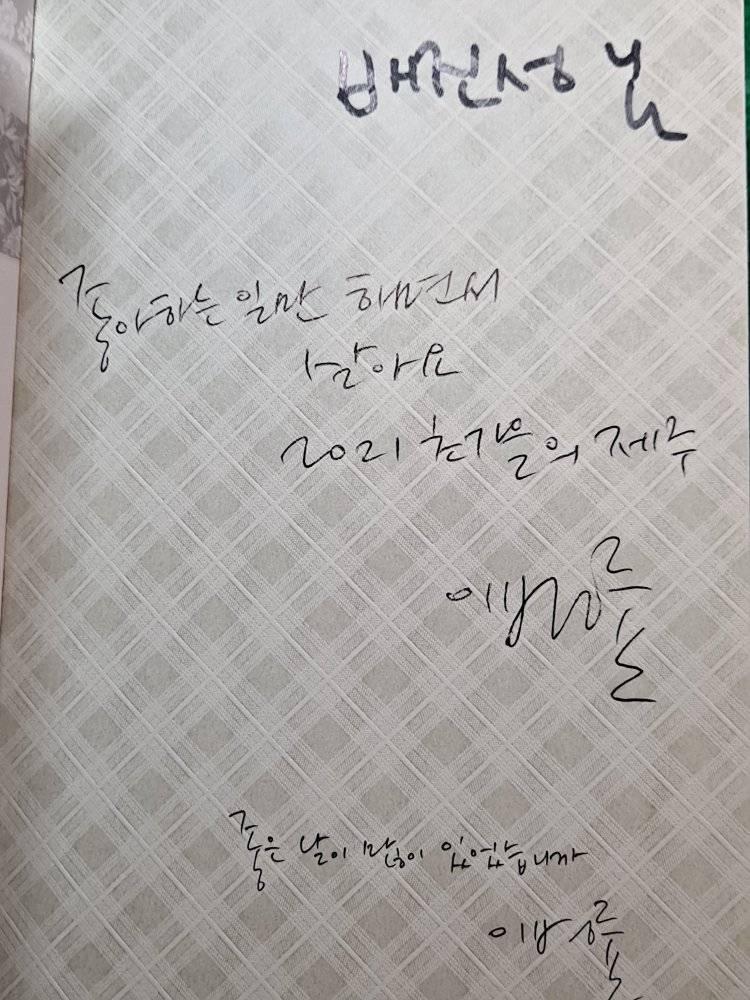 님
좋아하는 일만 하면서
살아요
2021 초가을의 제주
이병률
좋은 날이 많이 있었습니까
이병률